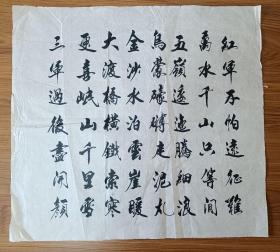 紅軍不怕遠征難
萬水千山只等閒
五嶺逶迤騰細浪
烏蒙磅礴走泥丸
金沙水泊雲崖暖
大渡橋橫鐵索寒
更喜岷山千里雪
三軍過後盡開顏